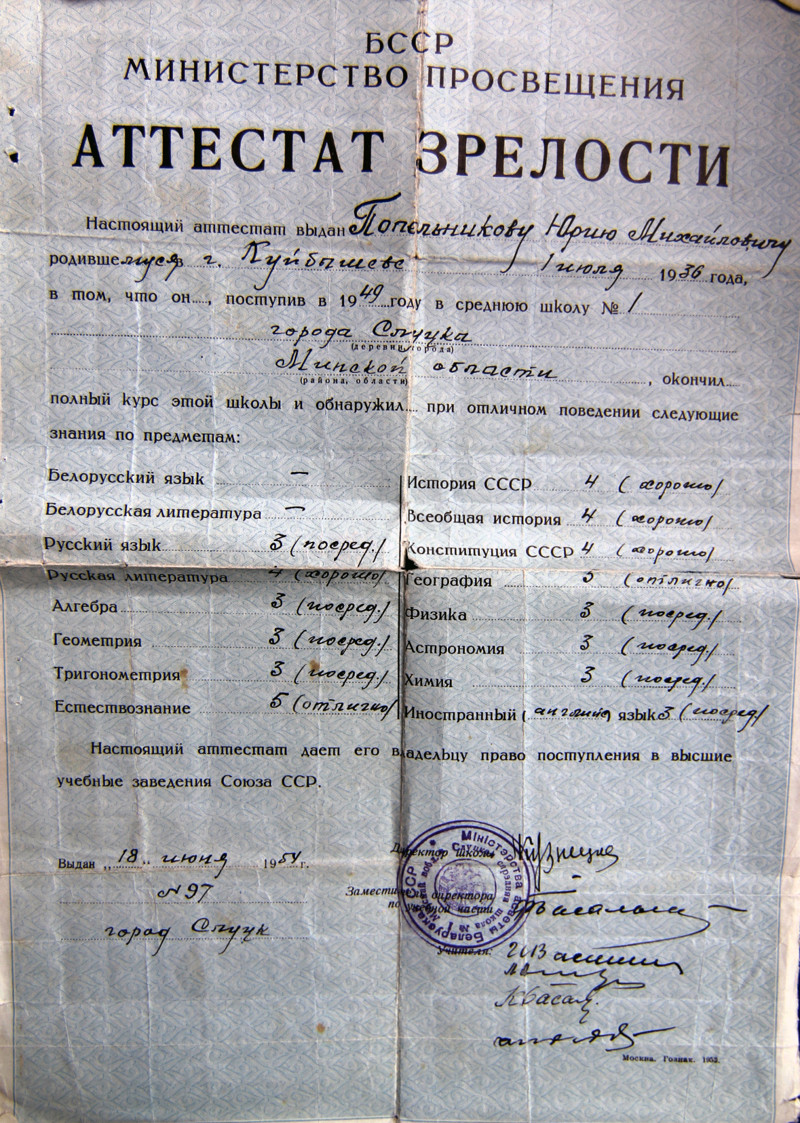 БССР
МИНИСТЕРСТВО ПРОСВЕЩЕНИЯ
АТТЕСТАТ ЗРЕЛОСТИ
Настоящий аттестат выдан Попельникову Юрию Михайловичу
родившемуся в г. Куйбышеве 1 июля 1936 года,
в том, что он...., поступив в 1949 году в среднюю школу № 1
города Слуцка
(деревни, города)
Минской области, окончил....
(района, области)
полный курс этой школы и обнаружил.... при отличном поведении следующие
знания по предметам:
Белорусский язык —
Белорусская литература —
Русский язык 3 (посред.)
Русская литература 4 (хорошо)
Алгебра 3 (посред.)
Геометрия 3 (посред.)
Тригонометрия 3 (посред.)
Естествознание 5 (отлично)
История СССР 4 (хорошо)
Всеобщая история 4 (хорошо)
Конституция СССР 4 (хорошо)
География 5 (отлично)
Физика 3 (посред.)
Астрономия 3 (посред.)
Химия 3 (посред.)
Иностранный (английс) язык 3 (посред)
Настоящий аттестат дает его владельцу право поступления в высшие
учебные заведения Союза ССР.
Выдан „18„ июня 1954 г.
№ 97
город Слуцк
Директор школы
Заместитель директора
по учебной части
Учителя:
Міністэрства асветы Беларускай ССР
№ 1
Москва. Гознак. 1952.